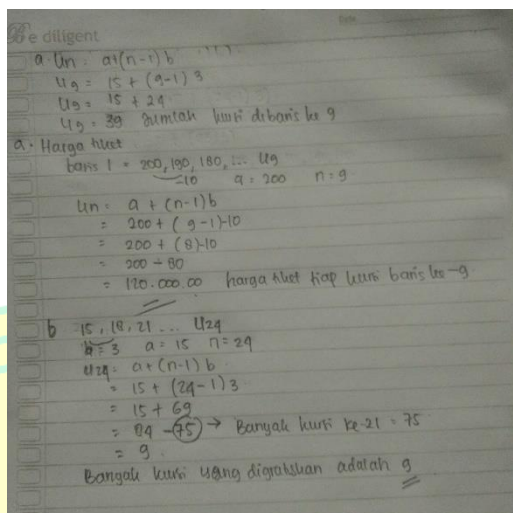 Be diligent
a. Un = a+(n-1)b
U9 = 15 + (9-1) 3
U9 = 15 + 24
U9 = 39 Jumlah kursi dibaris ke 9
a. Harga tiket
baris 1 = 200, 190, 180, ... U9
-10 a = 200 n = 9
Un = a + (n-1)b
= 200 + (9-1)-10
= 200 + (8)-10
= 200 - 80
= 120.000.00 harga tiket tiap kursi baris ke-9
b 15, 18, 21 ... U24
b = 3 a = 15 n = 24
U24 = a+(n-1) b
= 15 + (24-1) 3
= 15 + 69
= 84 - 75 → Banyak kursi ke-21 = 75
= 9
Banyak kursi yang digratiskan adalah 9